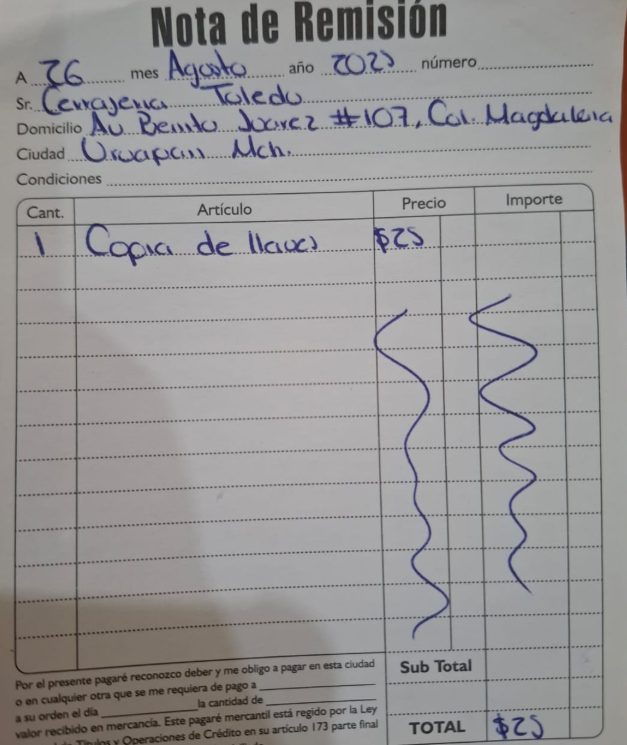 Nota de Remisión
A 26 mes Agosto año 2025 número
Sr. Cerrajeria Toledo
Domicilio Av Benito Juarez #107, Col. Magdalena
Ciudad Uruapan Mch.
Condiciones
Cant. Artículo Precio Importe
1 Copia de llaves $25
Por el presente pagaré reconozco deber y me obligo a pagar en esta ciudad
o en cualquier otra que se me requiera de pago a
a su orden el día la cantidad de
valor recibido en mercancía. Este pagaré mercantil está regido por la Ley
Títulos y Operaciones de Crédito en su artículo 173 parte final
Sub Total
TOTAL $25